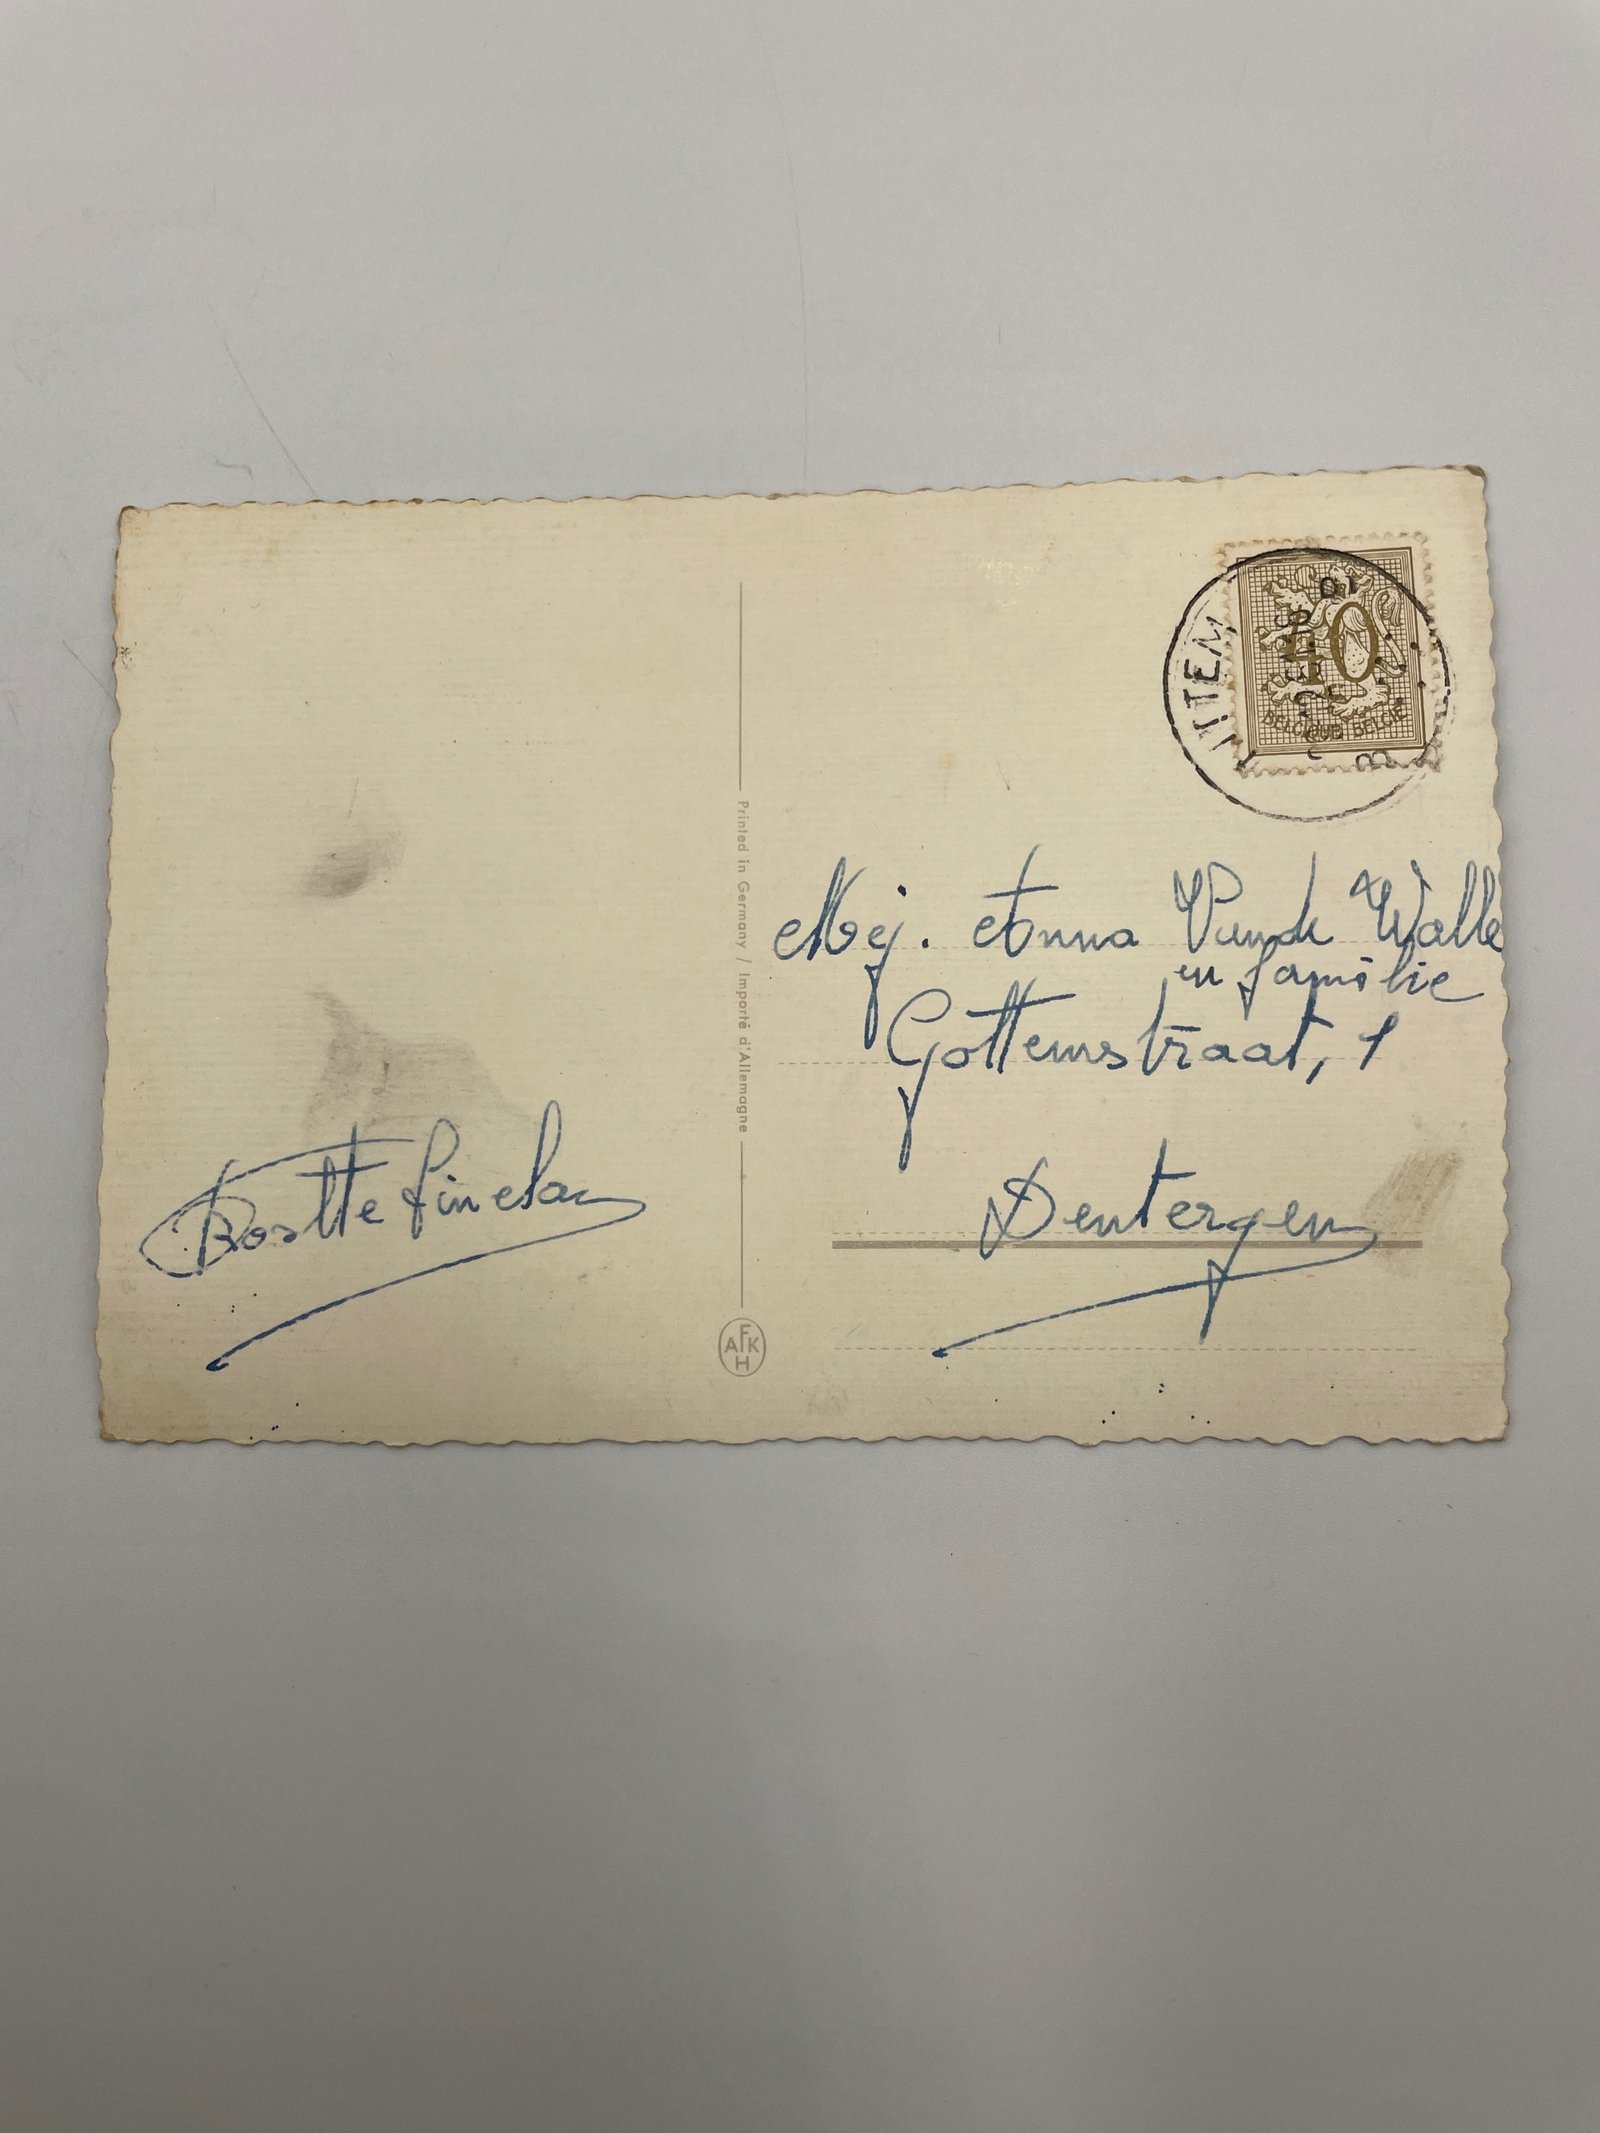 40
BELGIQUE BELGIE
Printed in Germany / Importé d'Allemagne
AFKH
Mej. Anna Vande Walle
en familie
Gottemstraat, 1
Dentergem